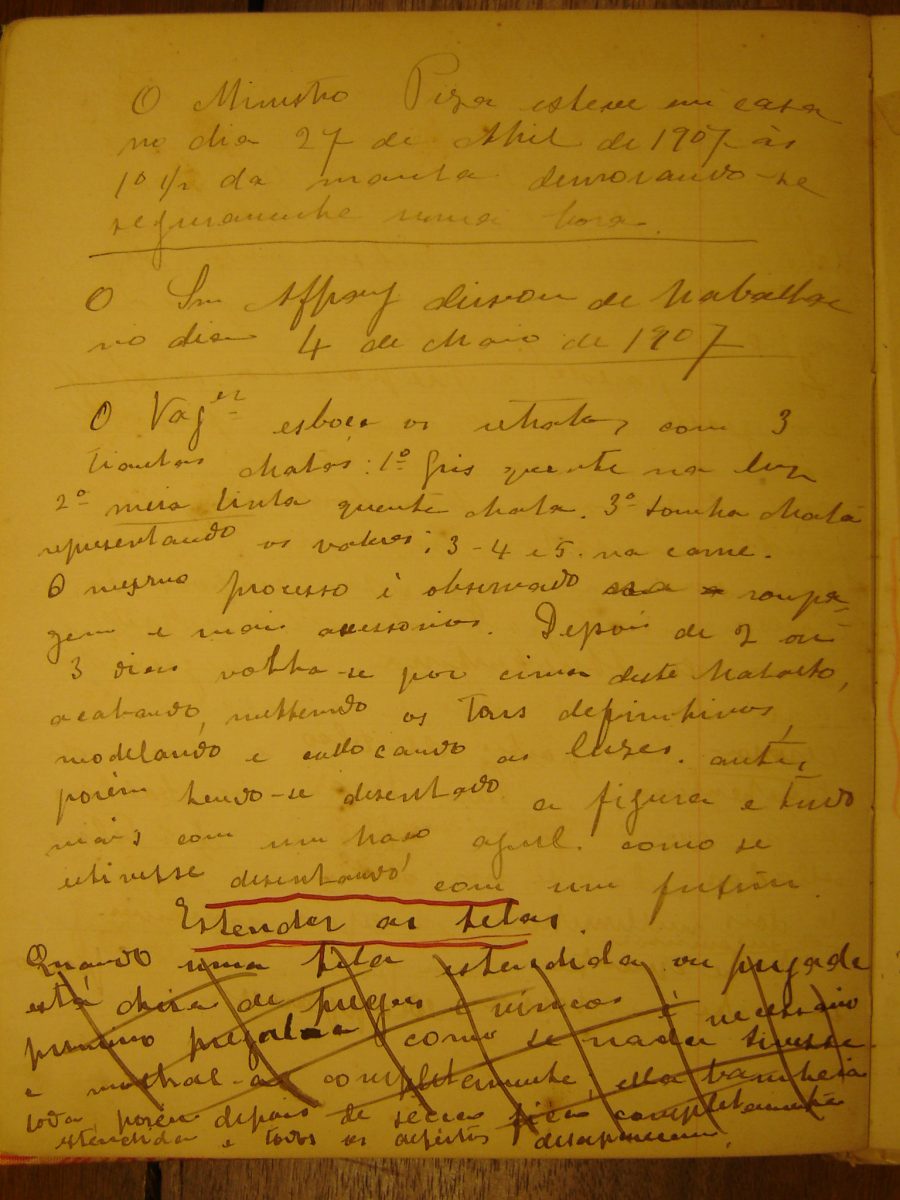 O Ministro Piza esteve em casa
no dia 27 de Abril de 1907 às
10 1/2 da manhã demorando-se
seguramente uma hora.
O Snr deixou de trabalhar
no dia 4 de Maio de 1907
O Vag esboça os retratos com 3
tintas chatas: 1º Gris quente na luz
2º meia tinta quente chata. 3º sombra chata
representando os valores: 3-4 e 5. na carne.
O mesmo processo é observado roupa-
gem e mais acessorios. Depois de 2 ou
3 dias volta-se por cima deste trabalho,
acabando, mettendo os tons definitivos,
modelando e collocando as luzes. antes,
porém tendo-se desenhado a figura e tudo
mais com um traço azul. como se
estivesse desenhando com um fusain.
Estender as telas.
Quando uma tela estendida ou pregada
está cheia de pregas e vincos é necessario
primeiro pregal-a como se nada tivesse
e molhal-as completamente; ella bambeia
toda porém depois de secca fica completamente
estendida e todos os defeitos desapparecem.